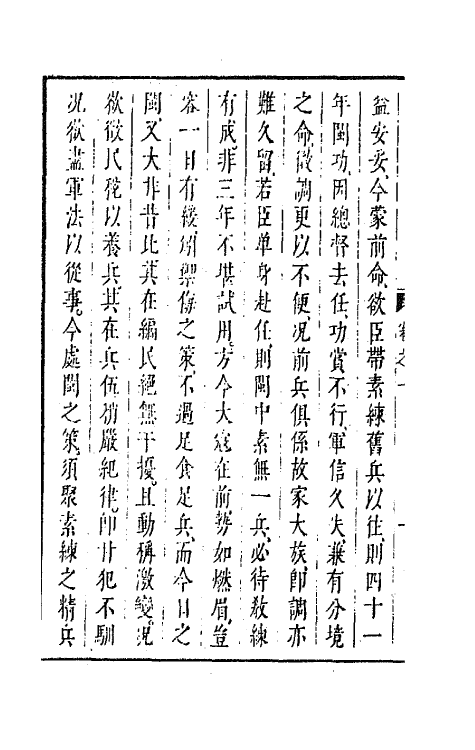 益安妥今蒙前命欲臣帶素練舊兵以往則四十一
年閩功因總督去任功賞不行軍信久失兼有分境
之命徵調更以不便况前兵俱係故家大族即調亦
難久留若臣单身赴任則閩中素無一兵必待敎練
有成非三年不堪試用方今大寇在前勢如燃眉豈
容一日有緩須禦侮之策不過足食足兵而今日之
閩又大非昔比其在編民絕無干擾且動稱激變况
欲徵民稅以養兵其在兵伍稍嚴紀律即甘犯不馴
况欲盡軍法以從事今處閩之策須聚素練之精兵
卷之一